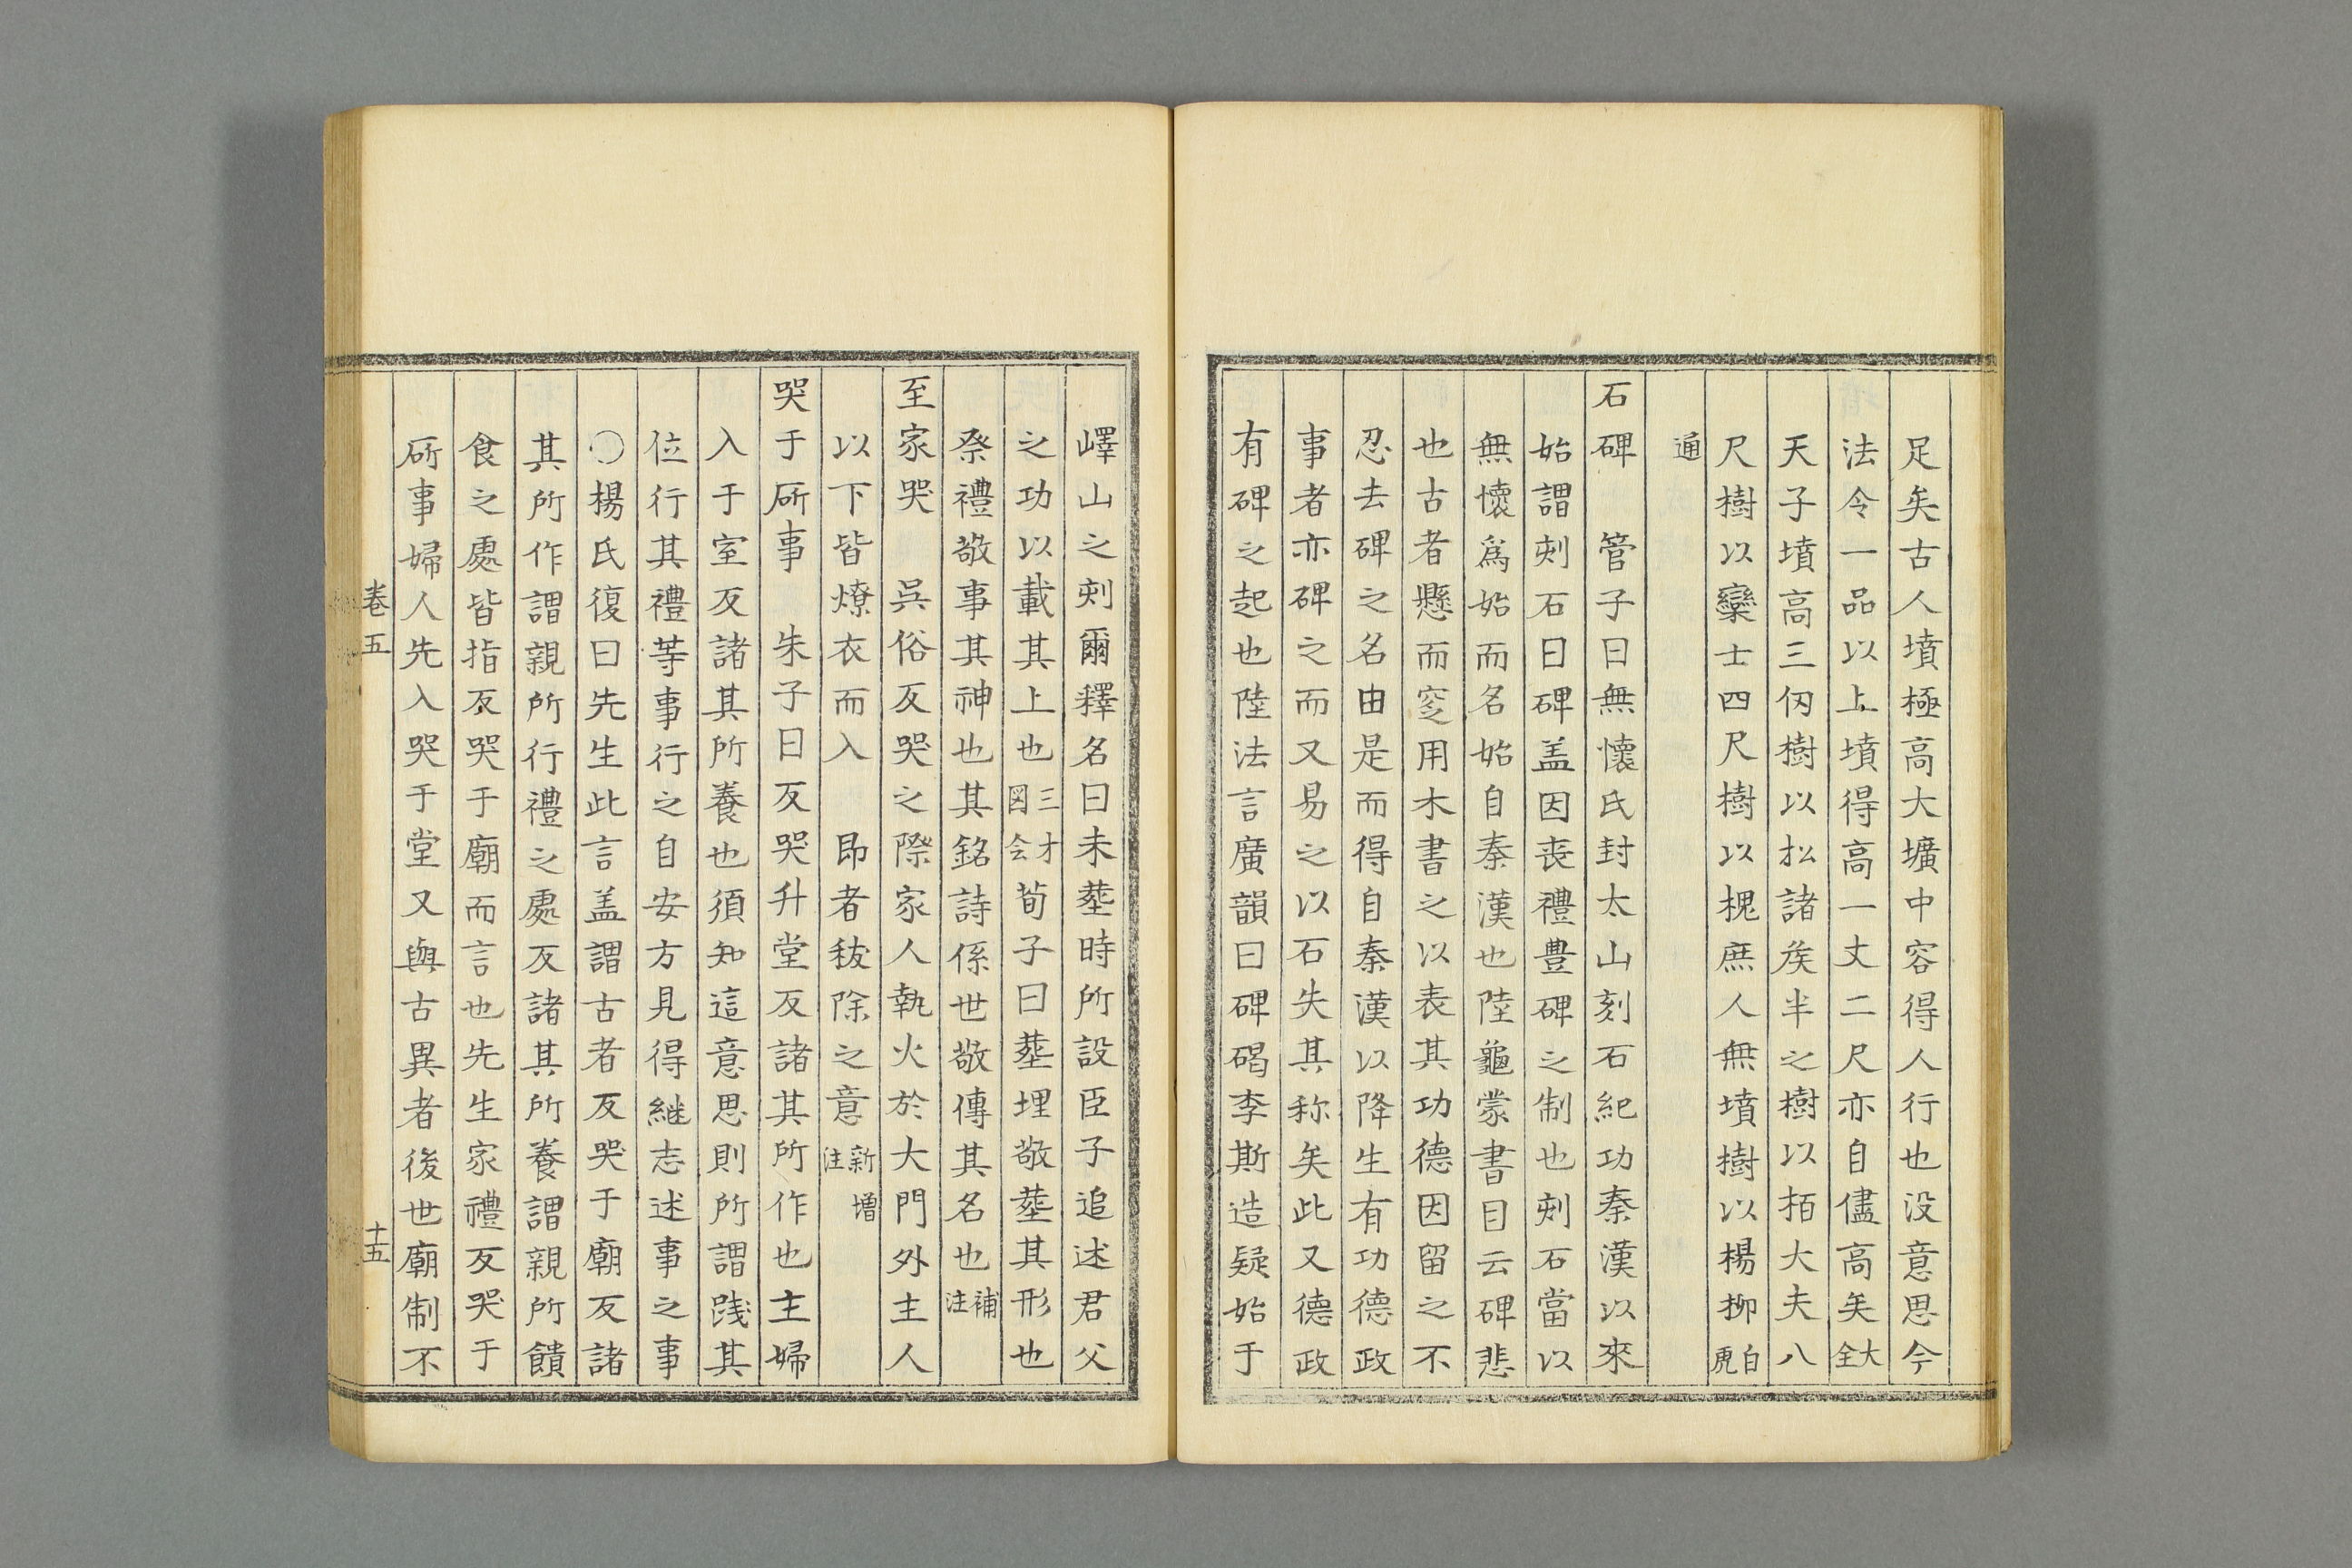 足矣古人墳極高大壙中容得人行也没意思今
法令一品以上墳得高一丈二尺亦自儘高矣大全
天子墳高三仭樹以松諸矦半之樹以栢大夫八
尺樹以欒士四尺樹以槐庶人無墳樹以楊柳白虎
通
石碑　管子曰無懷氏封太山刻石紀功秦漢以來
始謂刾石曰碑盖因丧禮豊碑之制也刾石當以
無懷爲始而名始自秦漢也陸龜蒙書目云碑悲
也古者懸而窆用木書之以表其功德因留之不
忍去碑之名由是而得自秦漢以降生有功德政
事者亦碑之而又易之以石失其称矣此又德政
有碑之起也陸法言廣韻曰碑碣李斯造疑始于
嶧山之刾爾釋名曰未塟時所設臣子追述君父
之功以載其上也三才図会荀子曰塟埋敬塟其形也
祭禮敬事其神也其銘詩係世敬傳其名也補注
至家哭　吳俗反哭之際家人執火於大門外主人
以下皆燎衣而入　即者秡除之意新增注
哭于所事　朱子曰反哭升堂反諸其所作也主婦
入于室反諸其所養也須知這意思則所謂踐其
位行其禮等事行之自安方見得継志述事之事
○楊氏復曰先生此言盖謂古者反哭于廟反諸
其所作謂親所行禮之處反諸其所養謂親所饋
食之處皆指反哭于廟而言也先生家禮反哭于
所事婦人先入哭于堂又與古異者後世廟制不
卷五
十五